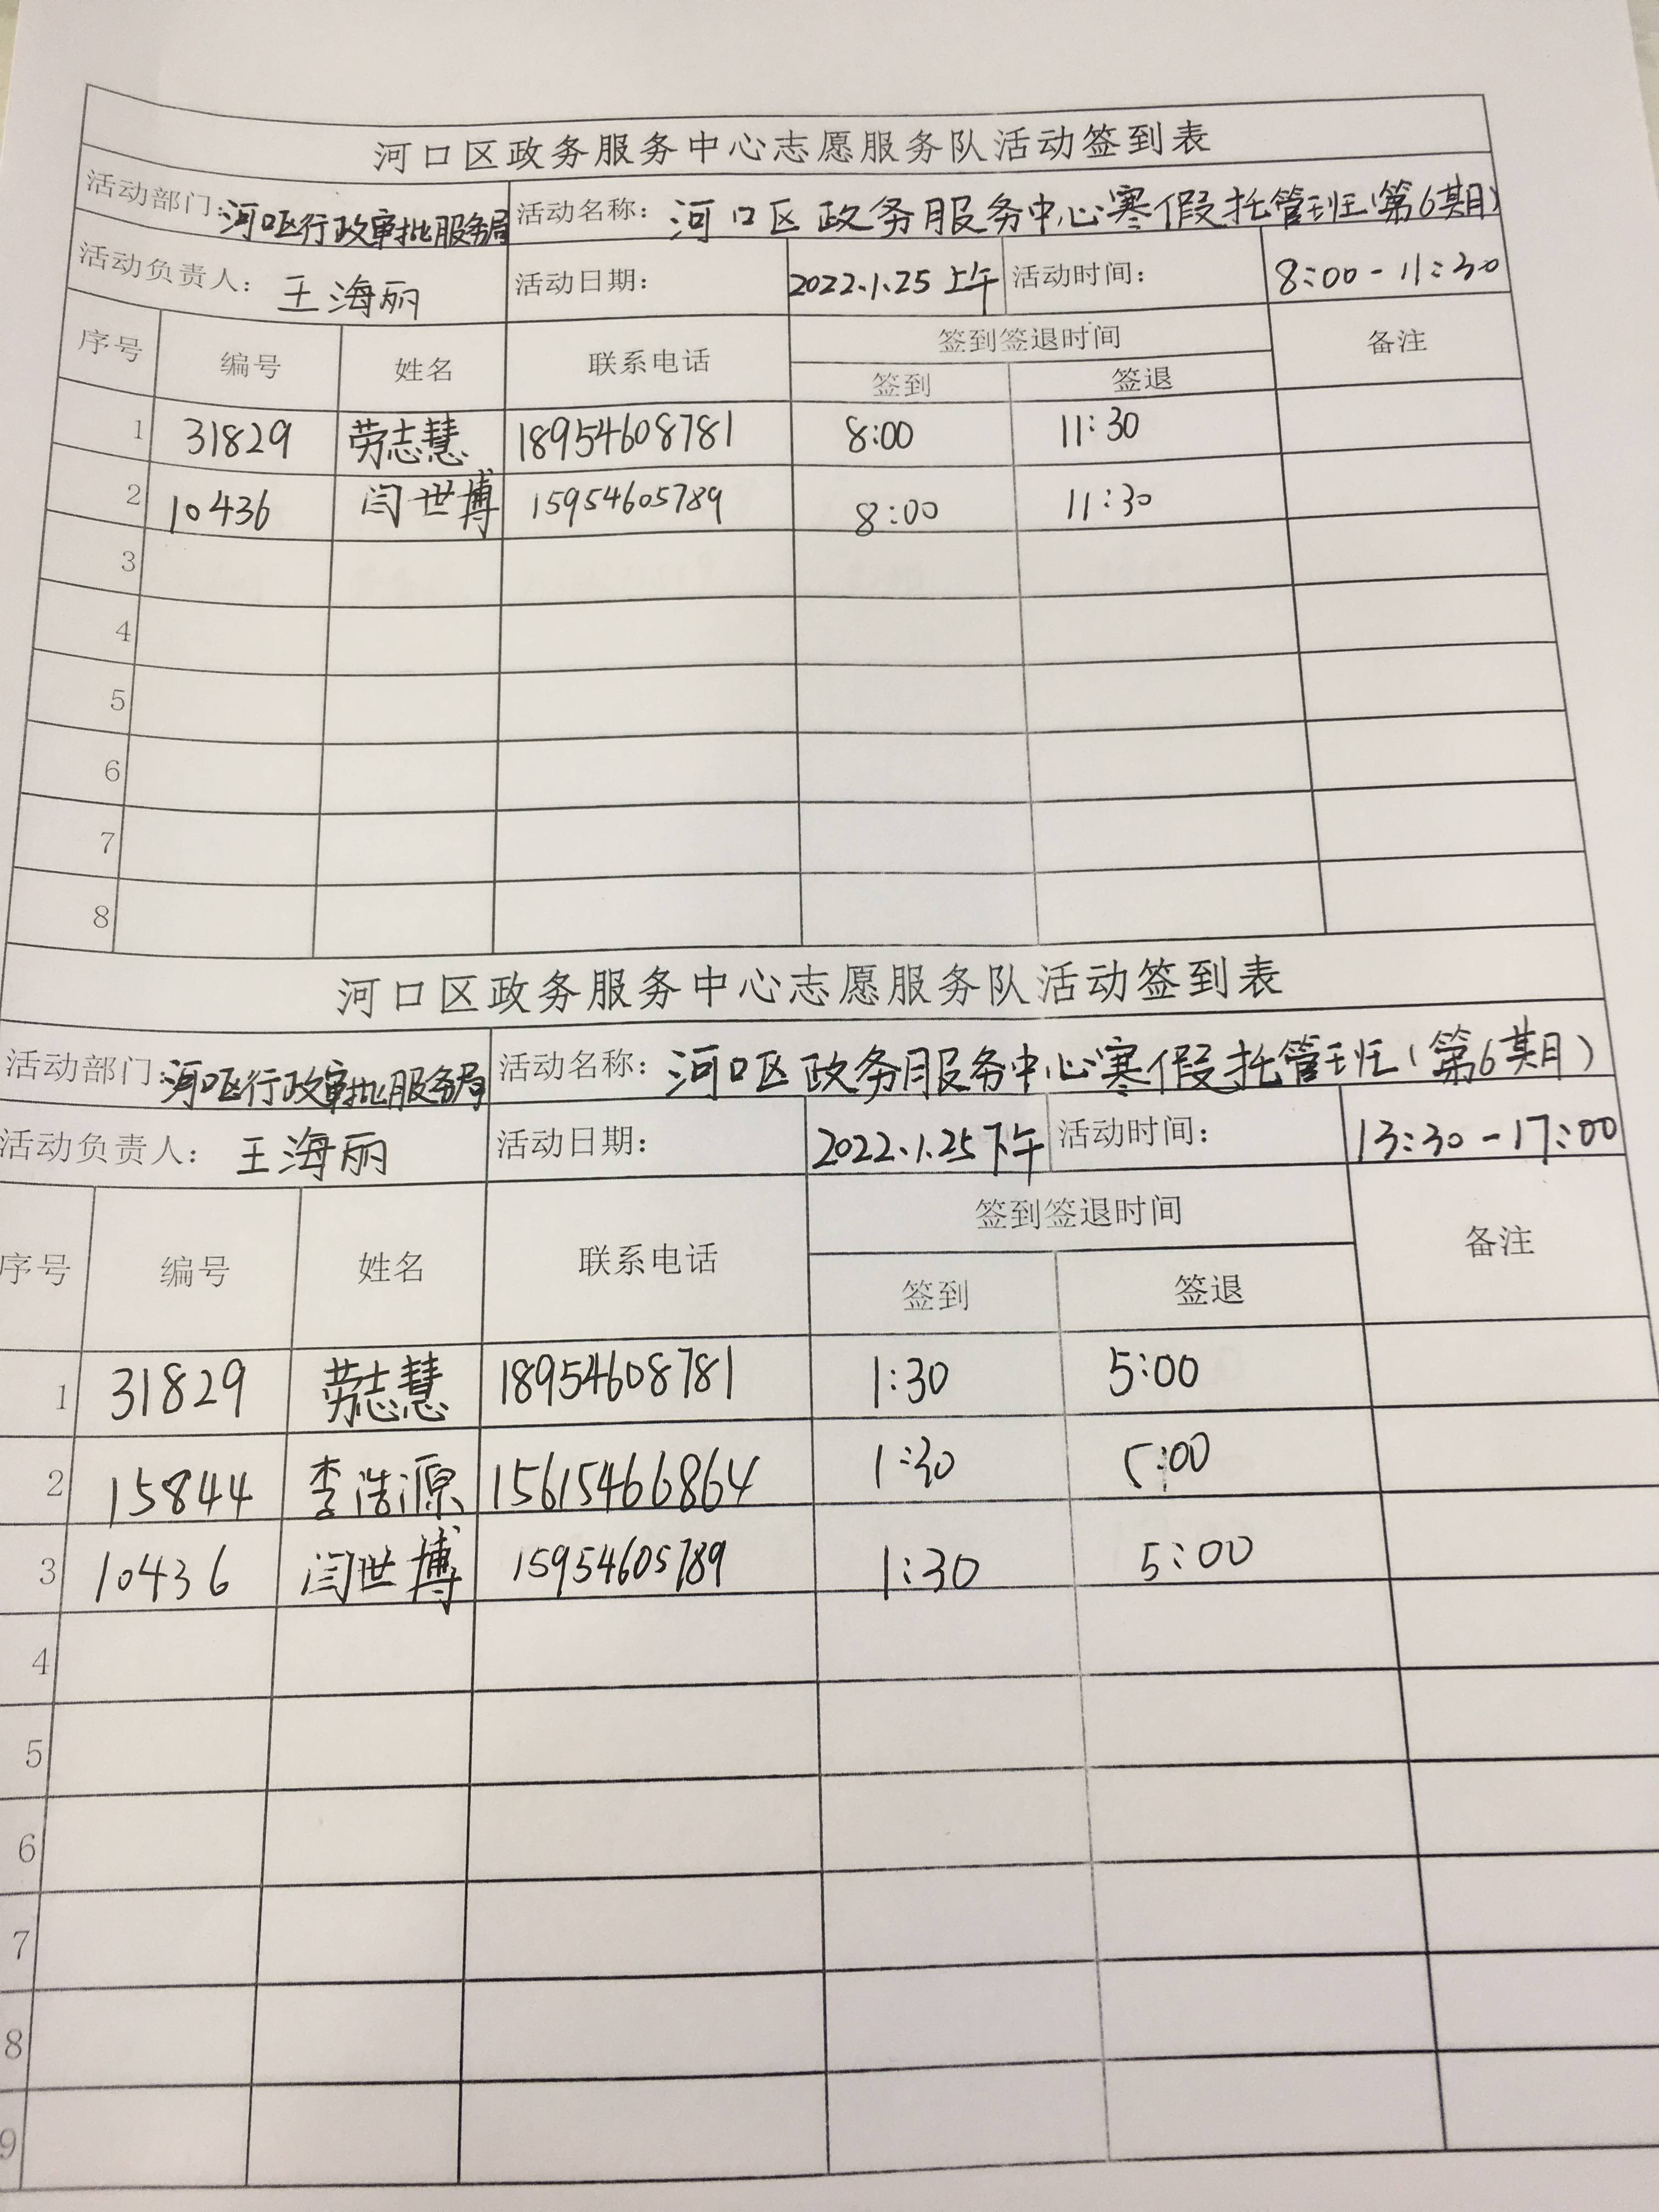 河口区政务服务中心志愿服务队活动签到表
活动部门：河口区行政审批服务局 活动名称：河口区政务服务中心寒假托管班（第6期）
活动负责人：王海丽 活动日期： 2022.1.25上午 活动时间： 8:00-11:30
序号 编号 姓名 联系电话 签到签退时间 备注
签到 签退
1 31829 劳志慧 18954608781 8:00 11:30
2 10436 闫世博 15954605789 8:00 11:30
3
4
5
6
7
8
河口区政务服务中心志愿服务队活动签到表
活动部门：河口区行政审批服务局 活动名称：河口区政务服务中心寒假托管班（第6期）
活动负责人：王海丽 活动日期： 2022.1.25下午 活动时间： 13:30-17:00
序号 编号 姓名 联系电话 签到签退时间 备注
签到 签退
1 31829 劳志慧 18954608781 1:30 5:00
2 15844 李浩源 15615466864 1:30 5:00
3 10436 闫世博 15954605789 1:30 5:00
4
5
6
7
8
9